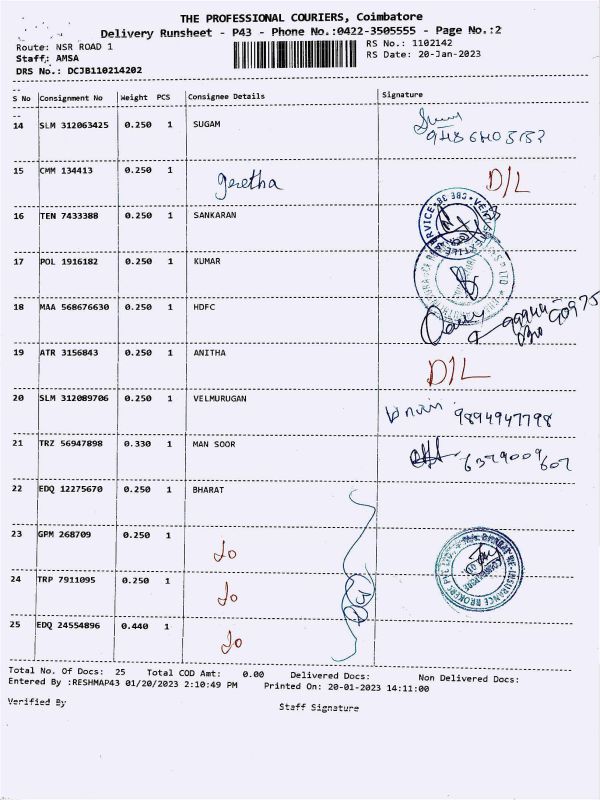 THE PROFESSIONAL COURIERS, Coimbatore
Delivery Runsheet - P43 - Phone No.:0422-3505555 - Page No.:2
Route: NSR ROAD 1 RS No.: 1102142
Staff: AMSA RS Date: 20-Jan-2023
DRS No.: DCJB110214202
S No Consignment No Weight PCS Consignee Details Signature
14 SLM 312063425 0.250 1 SUGAM
15 CMM 134413 0.250 1 geetha D/L
16 TEN 7433388 0.250 1 SANKARAN
17 POL 1916182 0.250 1 KUMAR
18 MAA 568676630 0.250 1 HDFC
19 ATR 3156843 0.250 1 ANITHA D/L
20 SLM 312089706 0.250 1 VELMURUGAN 9894947798
21 TRZ 56947898 0.330 1 MAN SOOR 6379009607
22 EDQ 12275670 0.250 1 BHARAT
23 GPM 268709 0.250 1 do
24 TRP 7911095 0.250 1 do
25 EDQ 24554896 0.440 1 do
Total No. Of Docs: 25 Total COD Amt: 0.00 Delivered Docs: Non Delivered Docs:
Entered By :RESHMAP43 01/20/2023 2:10:49 PM Printed On: 20-01-2023 14:11:00
Verified By Staff Signature